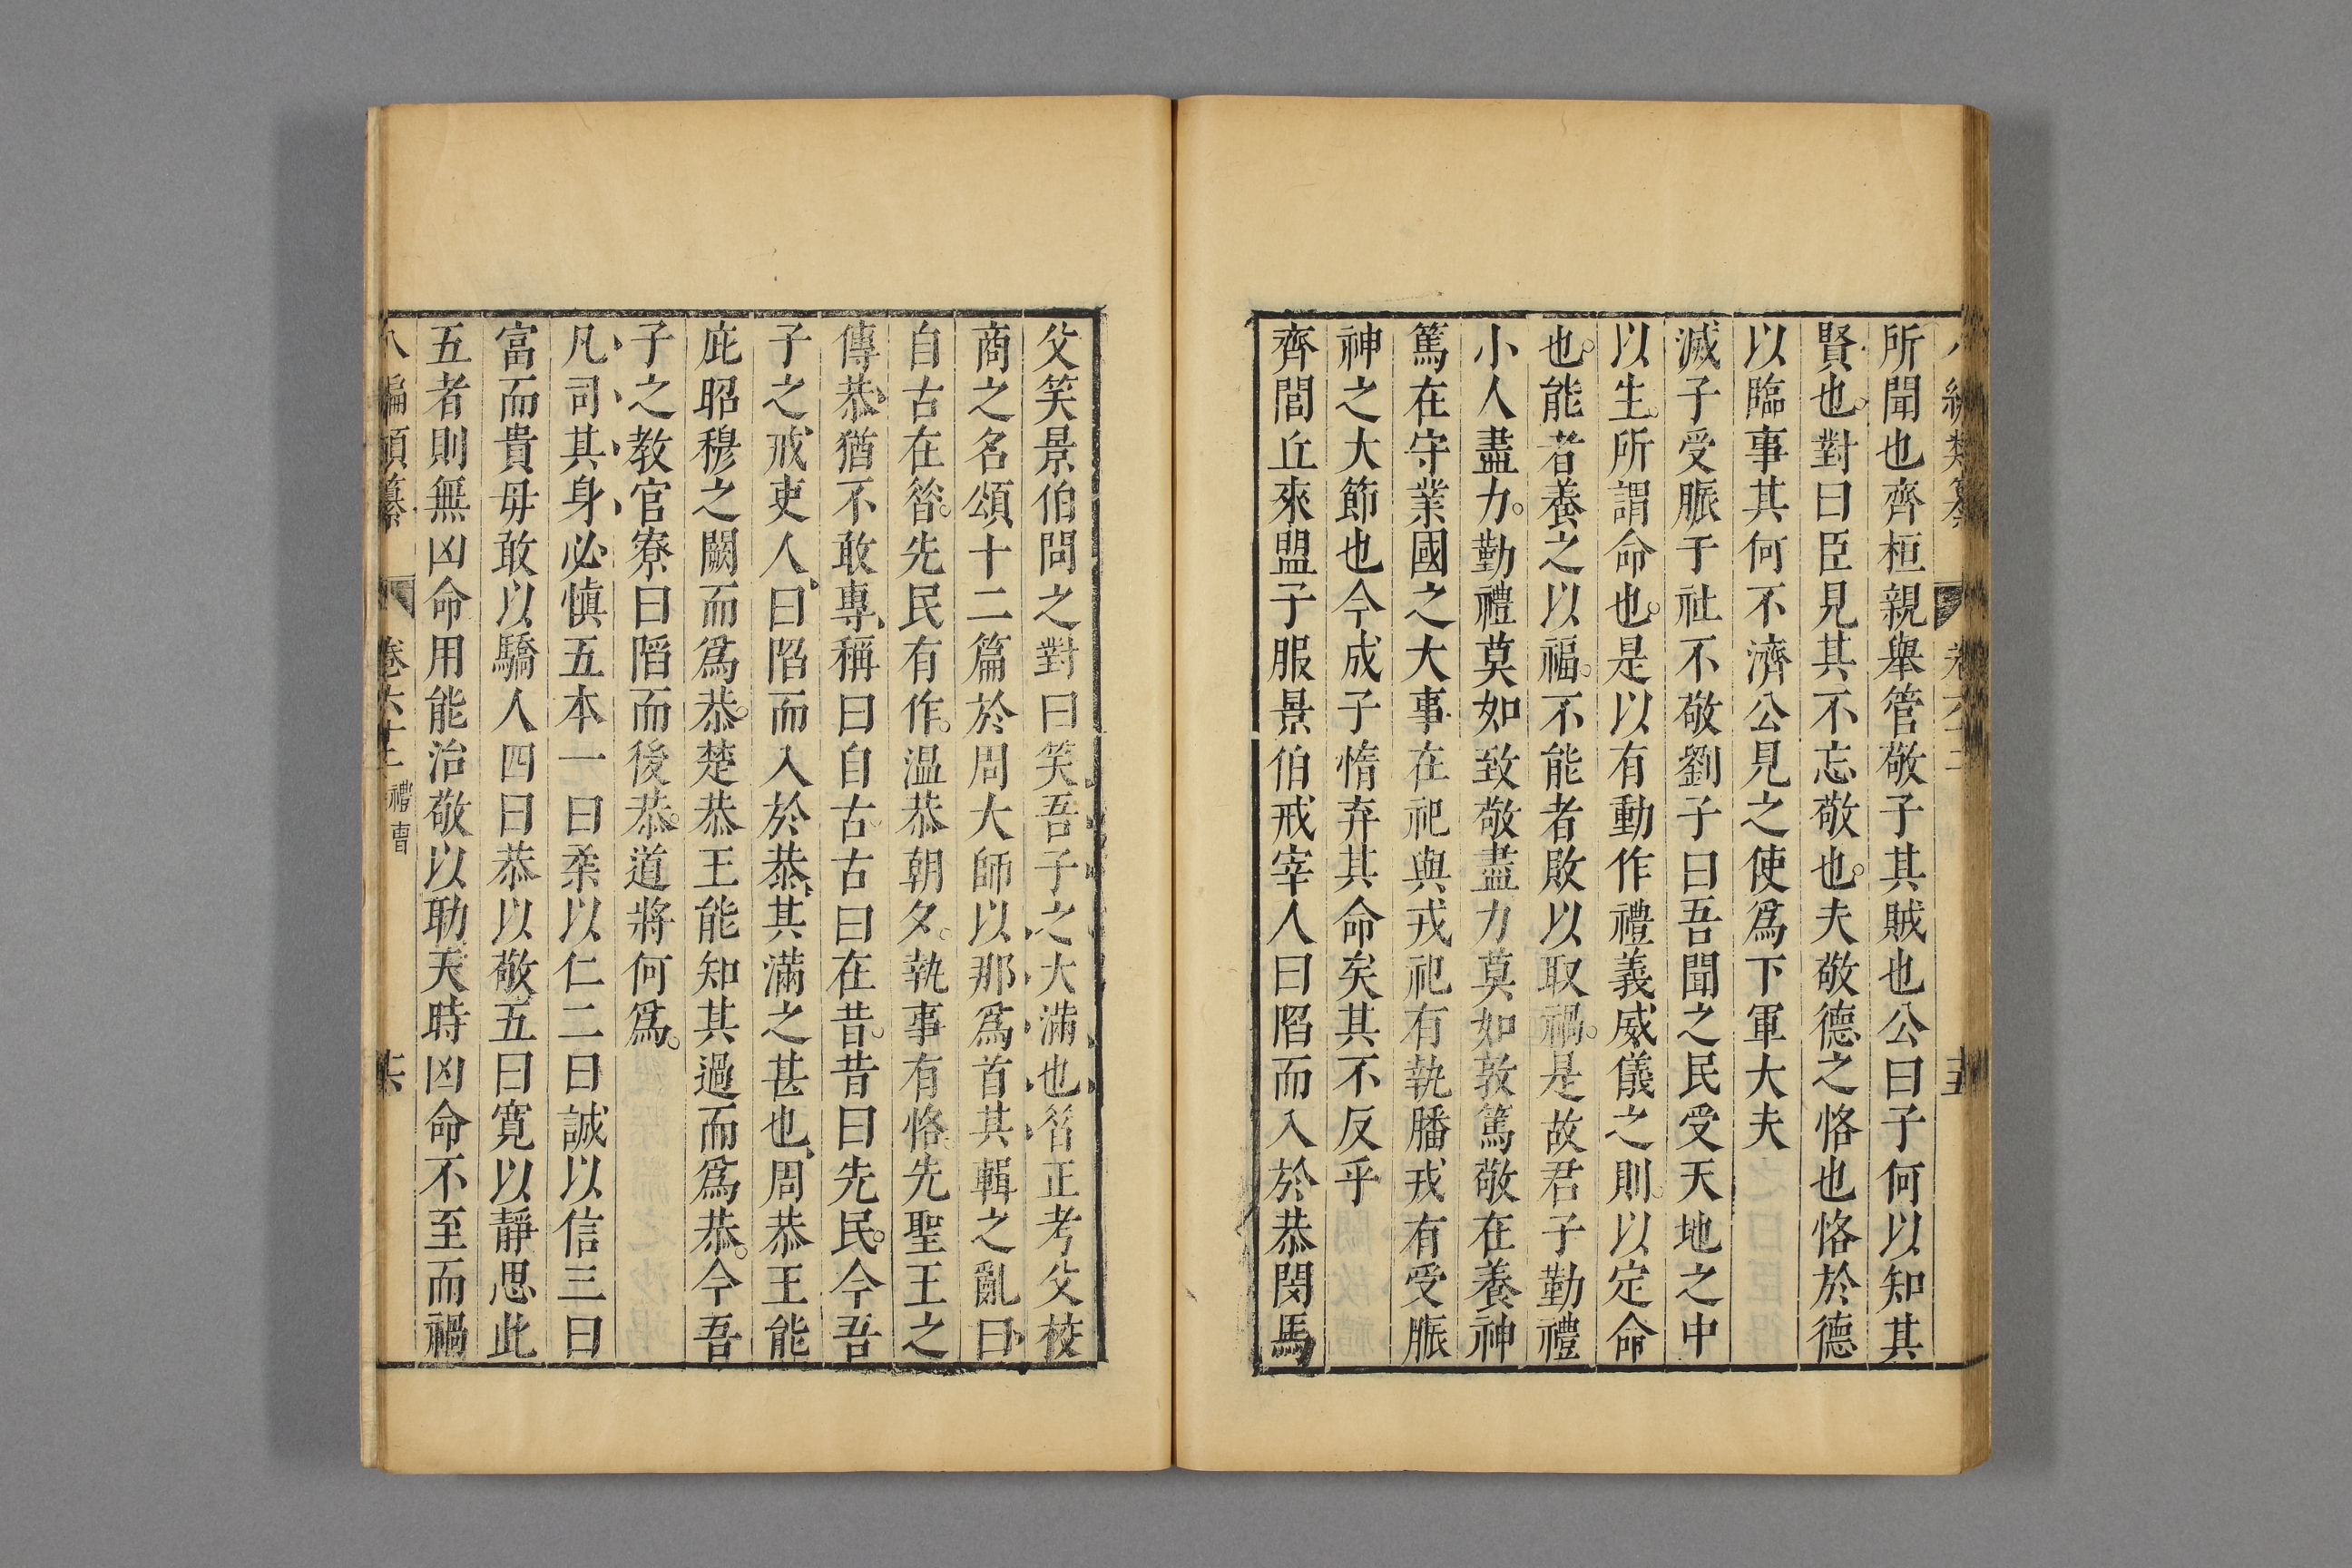 所聞也齊桓親舉管敬子其賊也公曰子何以知其
賢也對曰臣見其不忘敬也夫敬德之恪也恪於德
以臨事其何不濟公見之使爲下軍大夫
滅子受脤于社不敬劉子曰吾聞之民受天地之中
以生所謂命也是以有動作禮義威儀之則以定命
也能者養之以福不能者敗以取禍是故君子勤禮
小人盡力勤禮莫如致敬盡力莫如敦篤敬在養神
篤在守業國之大事在祀與戎祀有執膰戎有受脤
神之大節也今成子惰弃其命矣其不反乎
齊閭丘來盟子服景伯戒宰人曰陷而入於恭閔馬
父笑景伯問之對曰笑吾子之大滿也昝正考父校
商之名頌十二篇於周大師以那爲首其輯之亂曰
自古在昝先民有作温恭朝夕執事有恪先聖王之
傳恭猶不敢專稱曰自古古曰在昔昔曰先民今吾
子之戒吏人曰陷而入於恭其滿之甚也周恭王能
庇昭穆之闕而爲恭楚恭王能知其過而爲恭今吾
子之教官寮曰陷而後恭道將何爲
凡司其身必慎五本一曰柔以仁二曰誠以信三曰
富而貴毋敢以驕人四曰恭以敬五曰寬以靜思此
五者則無凶命用能治敬以助天時凶命不至而禍
八編類纂 卷六十三 禮曹 十六